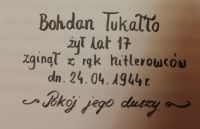 Bohdan Tukałło
żył lat 17
zginął z rąk hitlerowców
dn. 24.04.1944r.
Pokój jego duszy